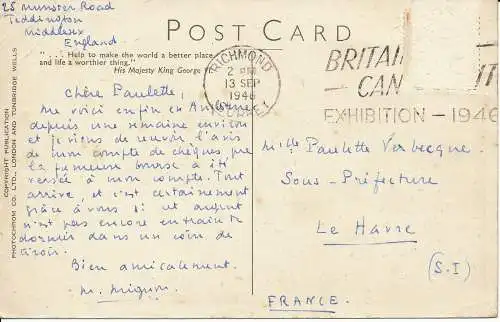 25 Munster Road
Teddington
Middlesex
England
POST CARD
"... Help to make the world a better place
and life a worthier thing."
His Majesty King George VI.
RICHMOND
2 PM
13 SEP
1946
SURREY
BRITAIN
CAN
IT
EXHIBITION - 1946
COPYRIGHT PUBLICATION
PHOTOCHROM CO. LTD., LONDON AND TUNBRIDGE WELLS
Chère Paulette,
Me voici enfin en Angleterre
depuis une semaine environ
et je viens de recevoir l'avis
de mon compte de chèques que
la fameuse bourse a été
versée à mon compte. Tout
arrive, et c'est certainement
grâce à vous si cet argent
n'est pas encore en train de
dormir dans un coin de
tiroir.
Bien amicalement.
M. Mignon
Mlle Paulette Verbecque
Sous-Préfecture
Le Havre
(S.I)
FRANCE.